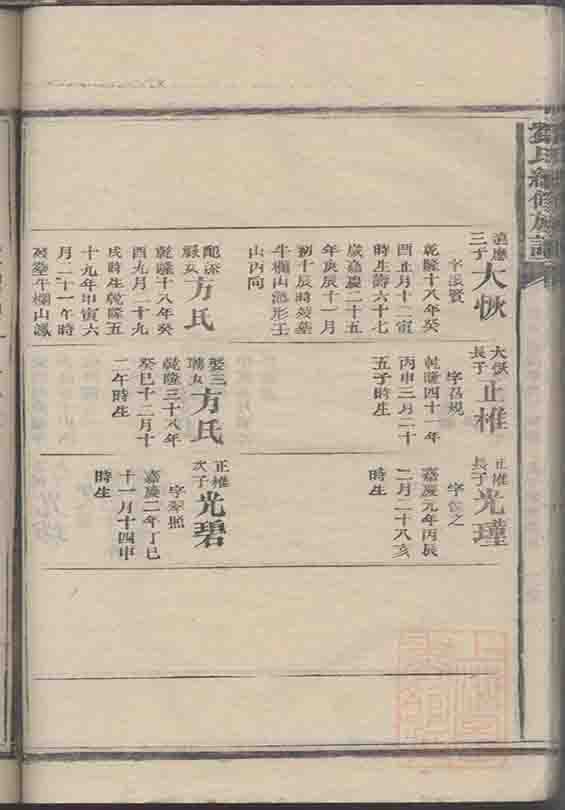 三子
大恢
乾隆十八年癸
酉正月十二寅
時生壽六十七
歲嘉慶二十五
年庚辰十一月
初十辰時歿葬
牛欄山 形壬
山丙向
配
女
方氏
乾隆十八年癸
酉九月二十九
戌時生乾隆五
十九年甲寅六
月二十一午時
歿葬牛欄山
大恢
長子
正權
字召規
乾隆四十一年
丙申三月二十
五子時生
娶三
女
方氏
乾隆三十八年
癸巳十二月十
二午時生
正權
長子
光瑾
嘉慶元年丙辰
二月二十八亥
時生
正權
次子
光碧
字翠照
嘉慶二年丁巳
十一月十四申
時生